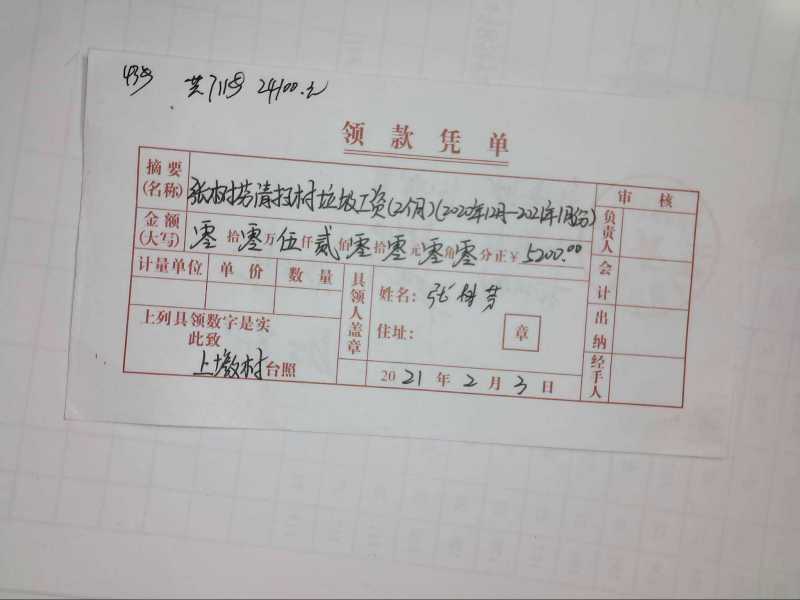 43号 共711号 24100.元
领款凭单
摘要(名称) 张树芳清扫村垃圾工资(2个月)(2020年12月-2021年1月份) 审核
金额(大写) 零拾零万伍仟贰佰零拾零元零角零分正¥ 5200.00 负责人
计量单位 单价 数量 具领人盖章 姓名: 张树芳 会计
上列具领数字是实 住址: 章 出纳
此致
上墩村台照 2021年2月3日 经手人